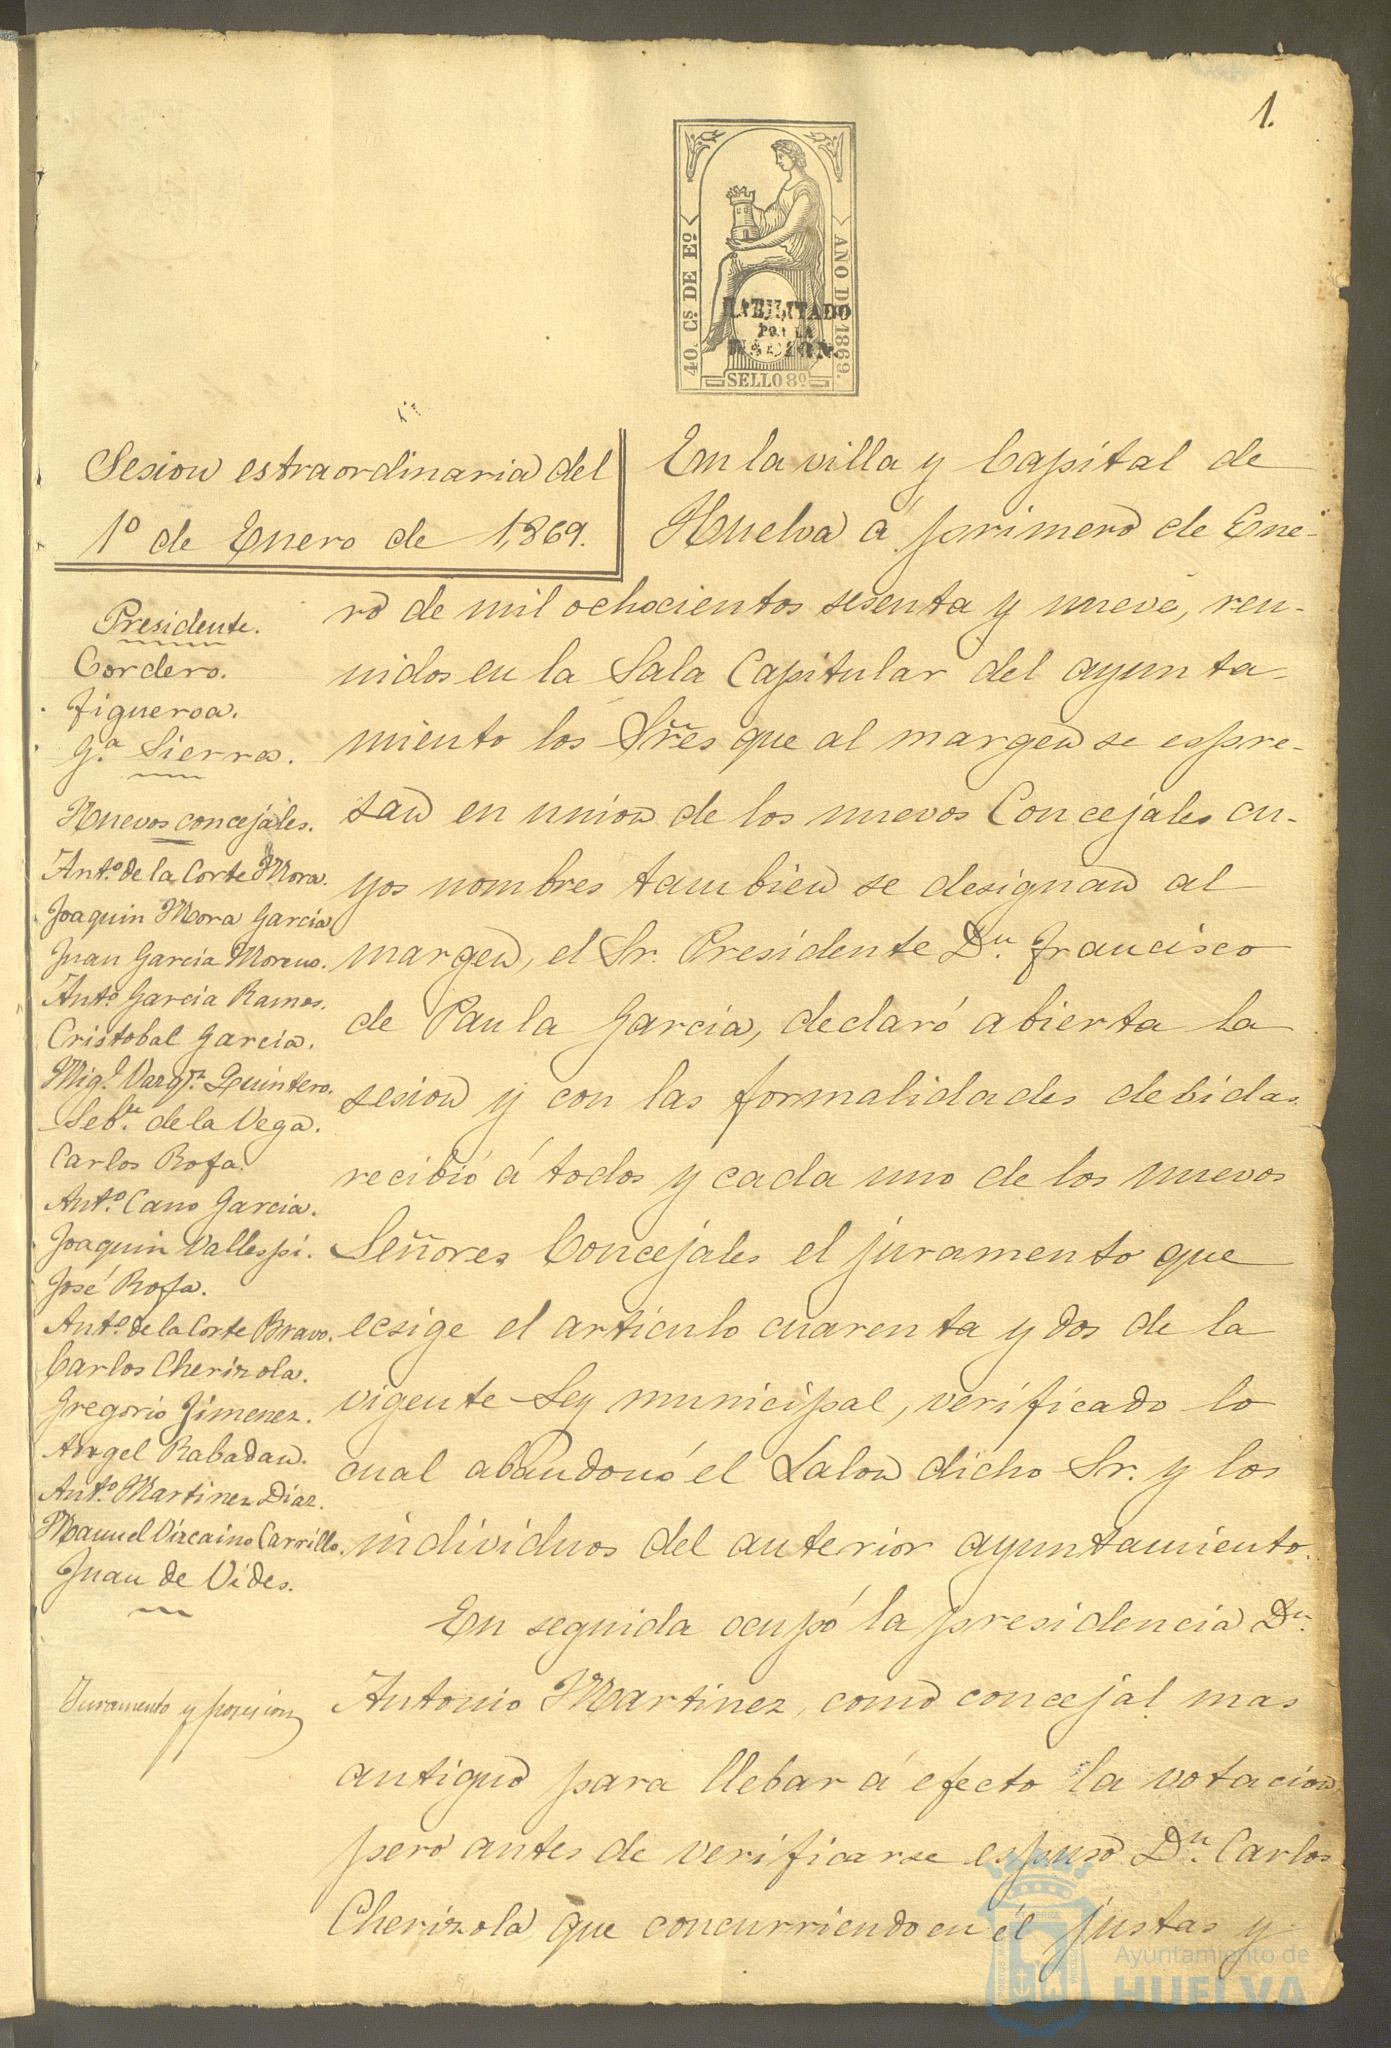 1.
40. Cs. DE Eo.
AÑO DE 1869.
HABILITADO
POR LA
NACION.
SELLO 8º
Sesion estraordinaria del
1º de Enero de 1,869.
Presidente.
Cordero.
Figueroa.
G.ª Sierra.
Nuevos concejales.
Ant.º de la Corte Mora.
Joaquin Mora Garcia
Juan Garcia Moreno.
Ant.º Garcia Ramos.
Cristobal Garcia.
Mig.l Vazq.z Quintero.
Seb.n de la Vega.
Carlos Rofa.
Ant.º Cano Garcia.
Joaquin Vallespi.
José Rofa.
Ant.º de la Corte Bravo.
Carlos Cherizola.
Gregorio Jimenez.
Angel Rabadan.
Ant.º Martinez Diaz.
Manuel Vizcaino Carrillo.
Juan de Vides.
Juramento y posesion
En la villa y Capital de
Huelva á primero de Ene-
ro de mil ochocientos sesenta y nueve, reu-
nidos en la Sala Capitular del ayunta-
miento los Sres que al margen se espre-
san en union de los nuevos Concejales cu-
yos nombres tambien se designan al
margen, el Sr. Presidente Dn. Francisco
de Paula Garcia, declaró abierta la
sesion y con las formalidades debidas
recibió á todos y cada uno de los nuevos
Señores Concejales el juramento que
ecsige el articulo cuarenta y dos de la
vigente Ley municipal, verificado lo
cual abandonó el Salon dicho Sr. y los
individuos del anterior ayuntamiento.
En seguida ocupó la presidencia Dn.
Antonio Martinez, como concejal mas
antiguo para llebar á efecto la votacion
pero antes de verificarse espuso Dn. Carlos
Cherizola que concurriendo en él justas y
Ayuntamiento de
HUELVA